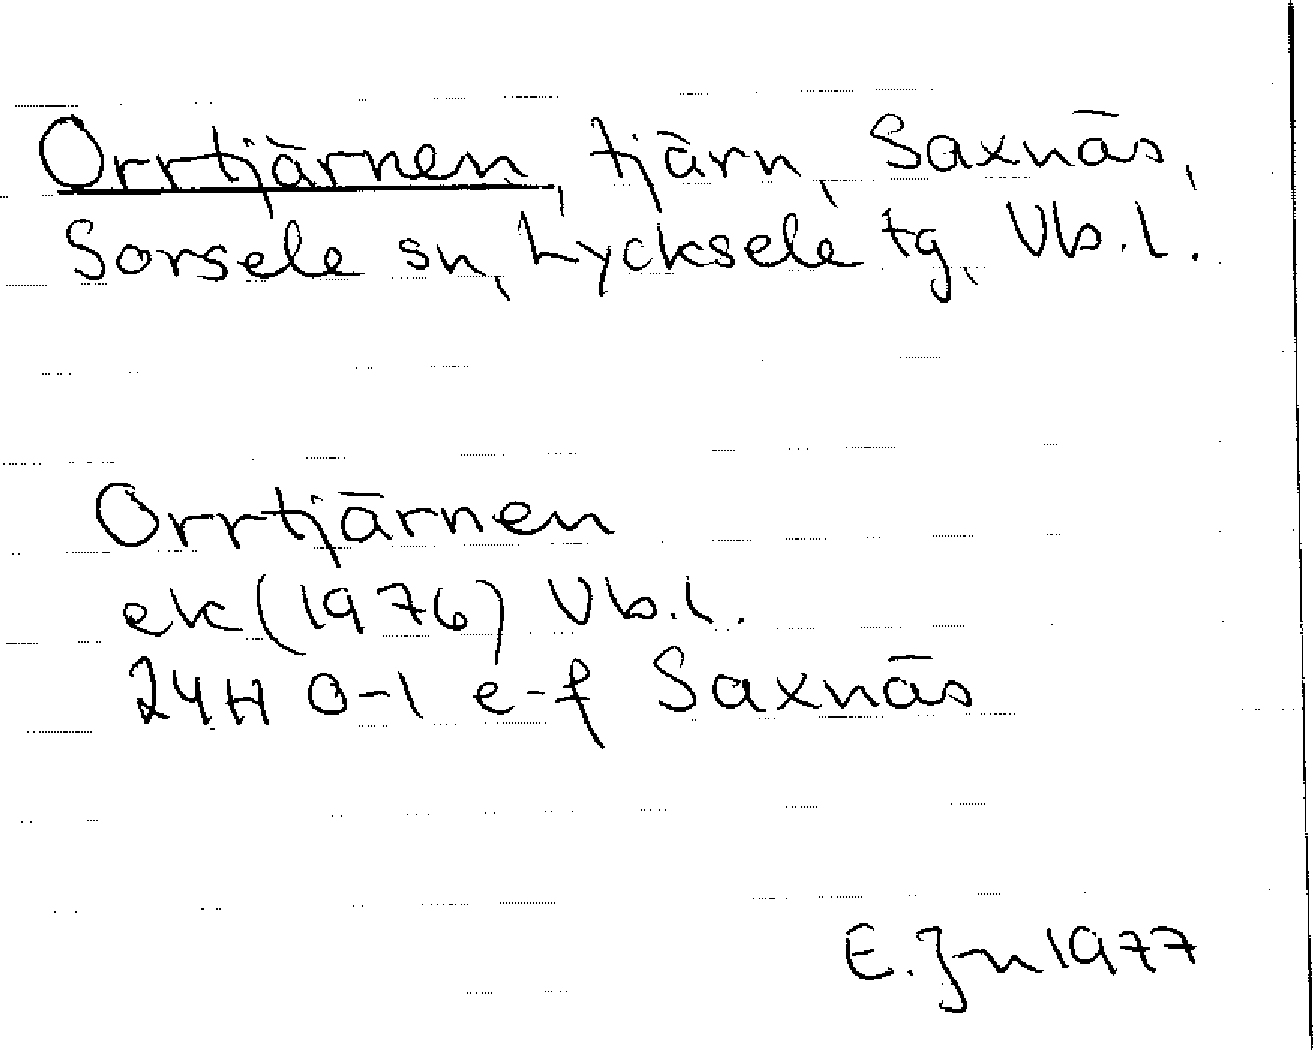 Orrtjärnen, tjärn, Saxnäs,
Sorsele sn, Lycksele tg, Vb.l.
Orrtjärnen
ek (1976) Vb.l.
24H 0-1 e-f Saxnäs
E. Jn 1977